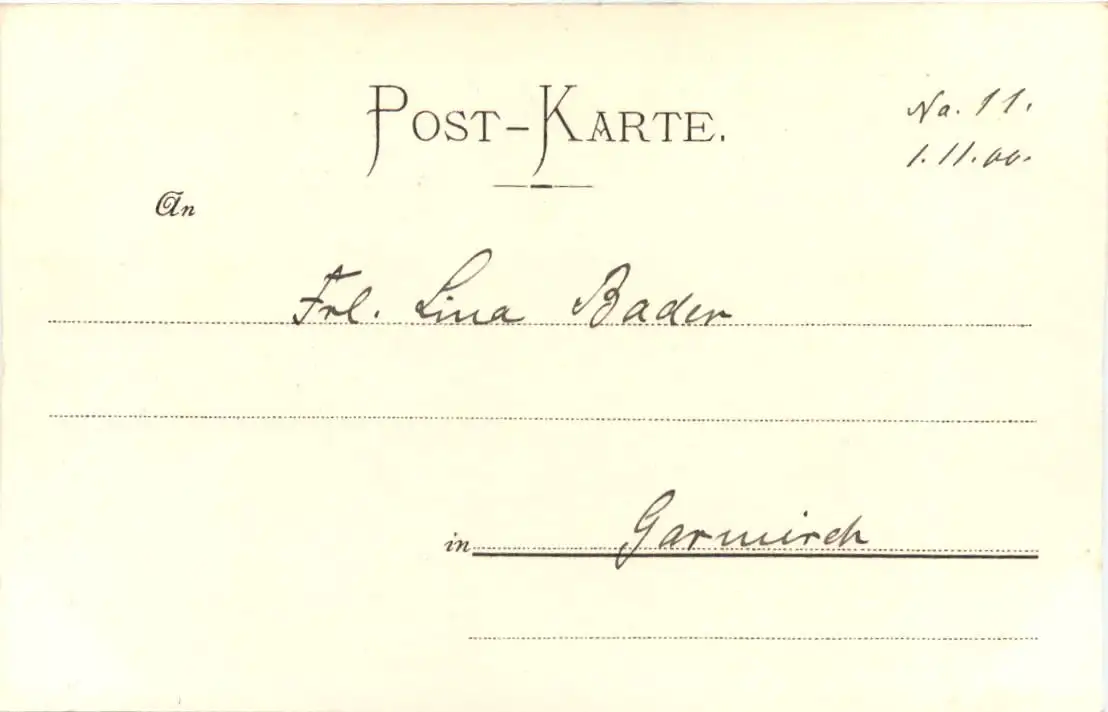 POST-KARTE.
No. 11.
1.11.00.
An
Frl. Lina Bader
in Garmisch